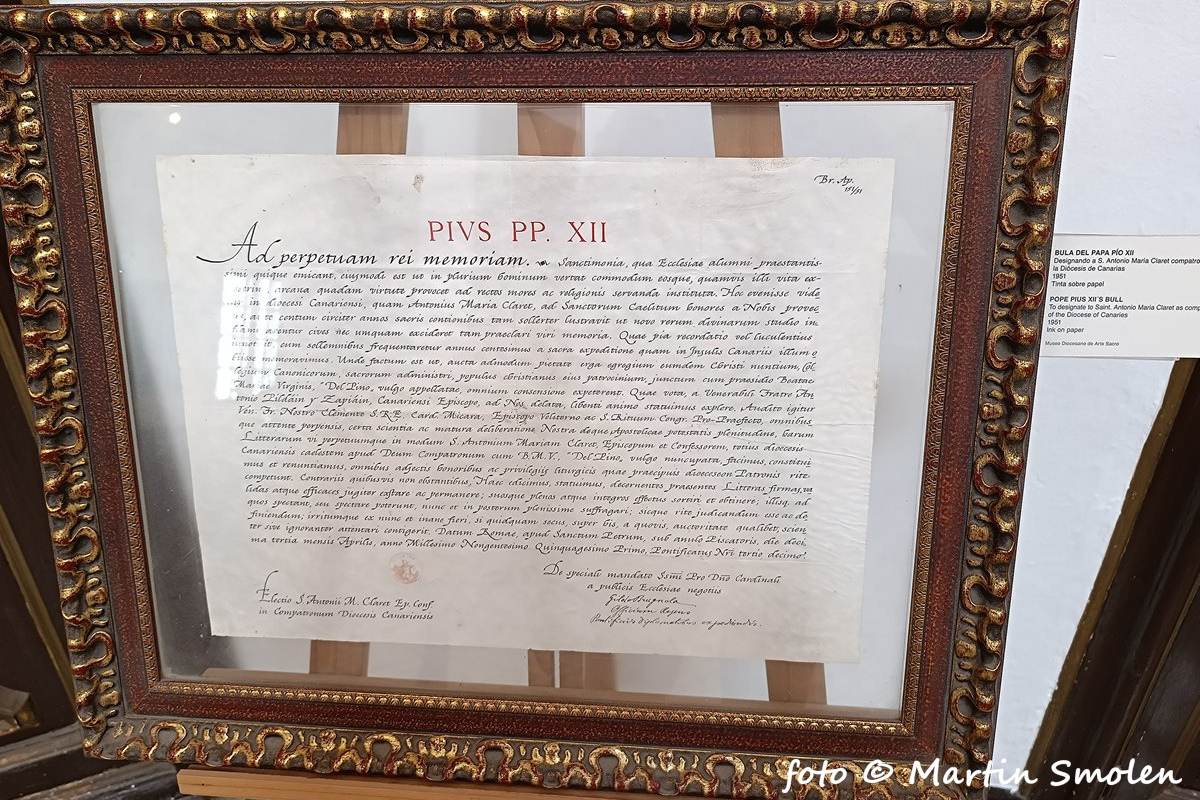 Br. Ap.
151/51
PIVS PP. XII
Ad perpetuam rei memoriam. Sanctimonia, qua Ecclesiae alumni praestantis-
simi quique emicant, cuiusmodi est ut in plurium hominum vertat commodum eosque, quamvis illi vita ex-
arcana quadam virtute provocet ad rectos mores ac religionis servanda instituta. Hoc evenisse vide
in dioecesi Canariensi, quam Antonius Maria Claret, ad Sanctorum Caelitum honores a Nobis provec
ante centum circiter annos sacris contionibus tam sollerter lustravit ut novo rerum divinarum studio in
cives nec unquam excideret tam praeclari viri memoria. Quae pia recordatio vel luculentius
cum sollemnibus frequentaretur annus centesimus a sacra expeditione quam in Insulis Canariis illum o
memoravimus. Unde factum est ut, aucta admodum pietate erga egregium eumdem Christi nuntium, Col
legium Canonicorum, sacrorum administri, populus christianus eius patrocinium, junctum cum praesidio Beatae
Mariae Virginis, "Del Pino, vulgo appellatae, omnium consensione expeterent. Quae vota, a Venerabili Fratre An
tonio Pildain y Zapiain, Canariensi Episcopo, ad Nos delata, libenti animo statuimus explere. Audito igitur
Ven. Fr. Nostro Clemente S.R.E. Card. Micara, Episcopo Veliterno ac S. Rituum Congr. Pro-Praefecto, omnibus
que attente perpensis, certa scientia ac matura deliberatione Nostra deque Apostolicae potestatis plenitudine, harum
Litterarum vi perpetuumque in modum S. Antonium Mariam Claret, Episcopum et Confessorem, totius dioecesis
Canariensis caelestem apud Deum Compatronum cum B.M.V., "Del Pino, vulgo nuncupata, facimus, constitui
mus et renuntiamus, omnibus adjectis honoribus ac privilegiis liturgicis quae praecipuis dioeceseon Patronis rite
competunt. Contrariis quibusvis non obstantibus. Haec edicimus, statuimus, decernentes praesentes Litteras firmas, va
lidas atque efficaces jugiter exstare ac permanere; suosque plenos atque integros effectus sortiri et obtinere; illisq. ad
quos spectant, seu spectare poterunt, nunc et in posterum plenissime suffragari; sicque rite judicandum esse ac de
finiendum; irritumque ex nunc et inane fieri, si quidquam secus, super his, a quovis, auctoritate qualibet, scien
ter sive ignoranter attentari contigerit. Datum Romae, apud Sanctum Petrum, sub anulo Piscatoris, die deci
ma tertia mensis Aprilis, anno Millesimo Nongentesimo Quinquagesimo Primo, Pontificatus Nri tertio decimo.
De speciali mandato Ssmi Pro Dno Cardinali
a publicis Ecclesiae negotiis
Gildo Brugnola
Officium Regens
Pontificiis diplomatibus expediendis.
Electio S. Antonii M. Claret Ep. Conf.
in Compatronum Dioecesis Canariensis
BULA DEL PAPA PÍO XII
Designando a S. Antonio María Claret compatro
la Diócesis de Canarias
1951
Tinta sobre papel
POPE PIUS XII'S BULL
To designate to Saint. Antonio María Claret as comp
of the Diocese of Canaries
1951
Ink on paper
Museo Diocesano de Arte Sacro
foto © Martin Smolen